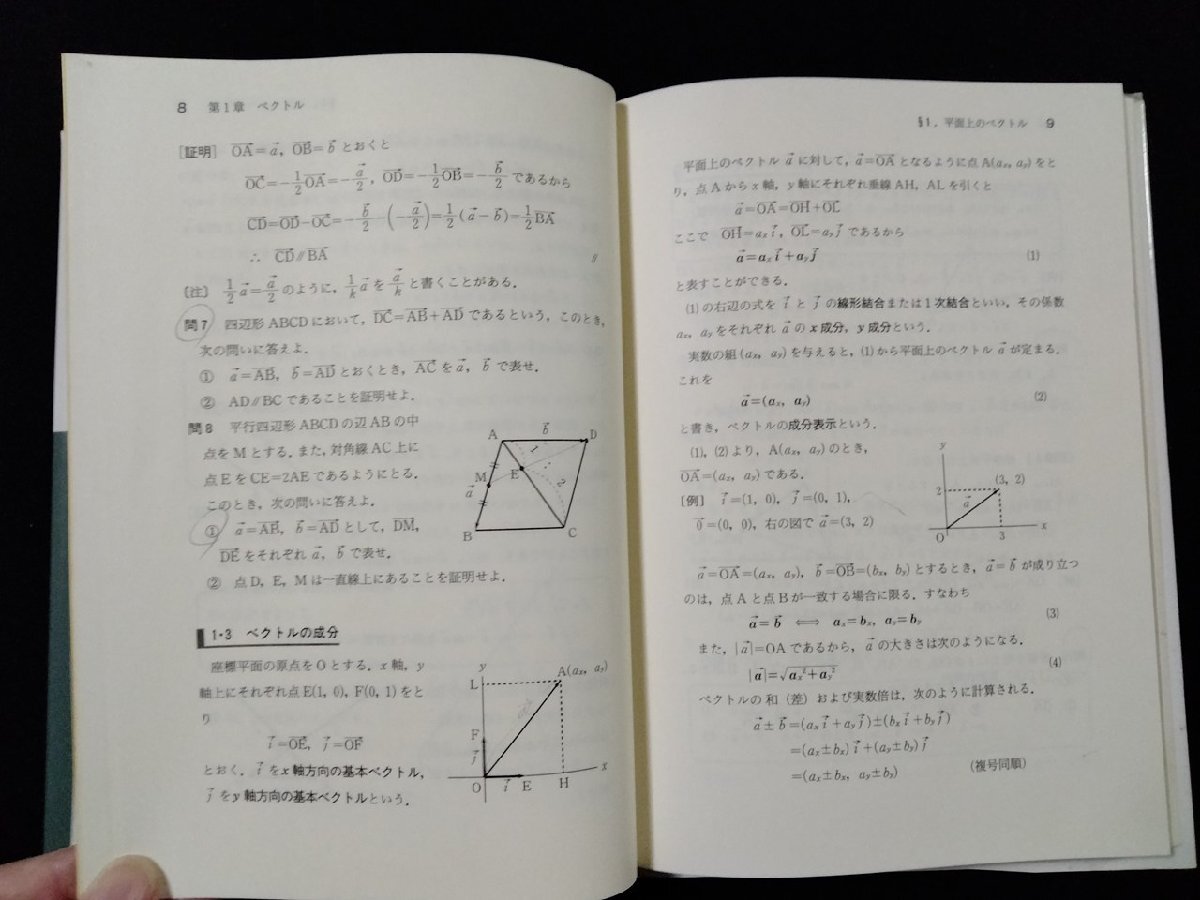 8 第1章 ベクトル
[証明] OA=a, OB=b とおくと
OC=-1/2OA=-a/2, OD=-1/2OB=-b/2 であるから
CD=OD-OC=-b/2-(-a/2)=1/2(a-b)=1/2BA
∴ CD∥BA //
[注] 1/2a=a/2 のように, 1/k a を a/k と書くことがある.
問7 四辺形 ABCD において, DC=AB+AD であるという. このとき,
次の問いに答えよ.
① a=AB, b=AD とおくとき, AC を a, b で表せ.
② AD∥BC であることを証明せよ.
問8 平行四辺形 ABCD の辺 AB の中
点を M とする. また, 対角線 AC 上に
点 E を CE=2AE であるようにとる.
このとき, 次の問いに答えよ.
① a=AB, b=AD として, DM,
DE をそれぞれ a, b で表せ.
② 点 D, E, M は一直線上にあることを証明せよ.
A b D
1
M E 2
a
B C
1・3 ベクトルの成分
座標平面の原点を O とする. x 軸, y
軸上にそれぞれ点 E(1, 0), F(0, 1) をと
り
i=OE, j=OF
とおく. i を x 軸方向の基本ベクトル,
j を y 軸方向の基本ベクトルという.
y
L A(ax, ay)
F
j
O i E H x
§1. 平面上のベクトル 9
平面上のベクトル a に対して, a=OA となるように点 A(ax, ay) をと
り, 点 A から x 軸, y 軸にそれぞれ垂線 AH, AL を引くと
a=OA=OH+OL
ここで OH=ax i, OL=ay j であるから
a=ax i+ay j (1)
と表すことができる.
(1) の右辺の式を i と j の線形結合または1次結合といい, その係数
ax, ay をそれぞれ a の x 成分, y 成分という.
実数の組 (ax, ay) を与えると, (1) から平面上のベクトル a が定まる.
これを
a=(ax, ay) (2)
と書き, ベクトルの成分表示という.
(1), (2) より, A(ax, ay) のとき,
OA=(ax, ay) である.
[例] i=(1, 0), j=(0, 1),
0=(0, 0), 右の図で a=(3, 2)
y
2 (3, 2)
a
O 3 x
a=OA=(ax, ay), b=OB=(bx, by) とするとき, a=b が成り立つ
のは, 点 A と点 B が一致する場合に限る. すなわち
a=b ⟺ ax=bx, ay=by (3)
また, |a|=OA であるから, a の大きさは次のようになる.
|a|=√ax²+ay² (4)
ベクトルの 和 (差) および実数倍は, 次のように計算される.
a±b=(ax i+ay j)±(bx i+by j)
=(ax±bx) i+(ay±by) j
=(ax±bx, ay±by) (複号同順)